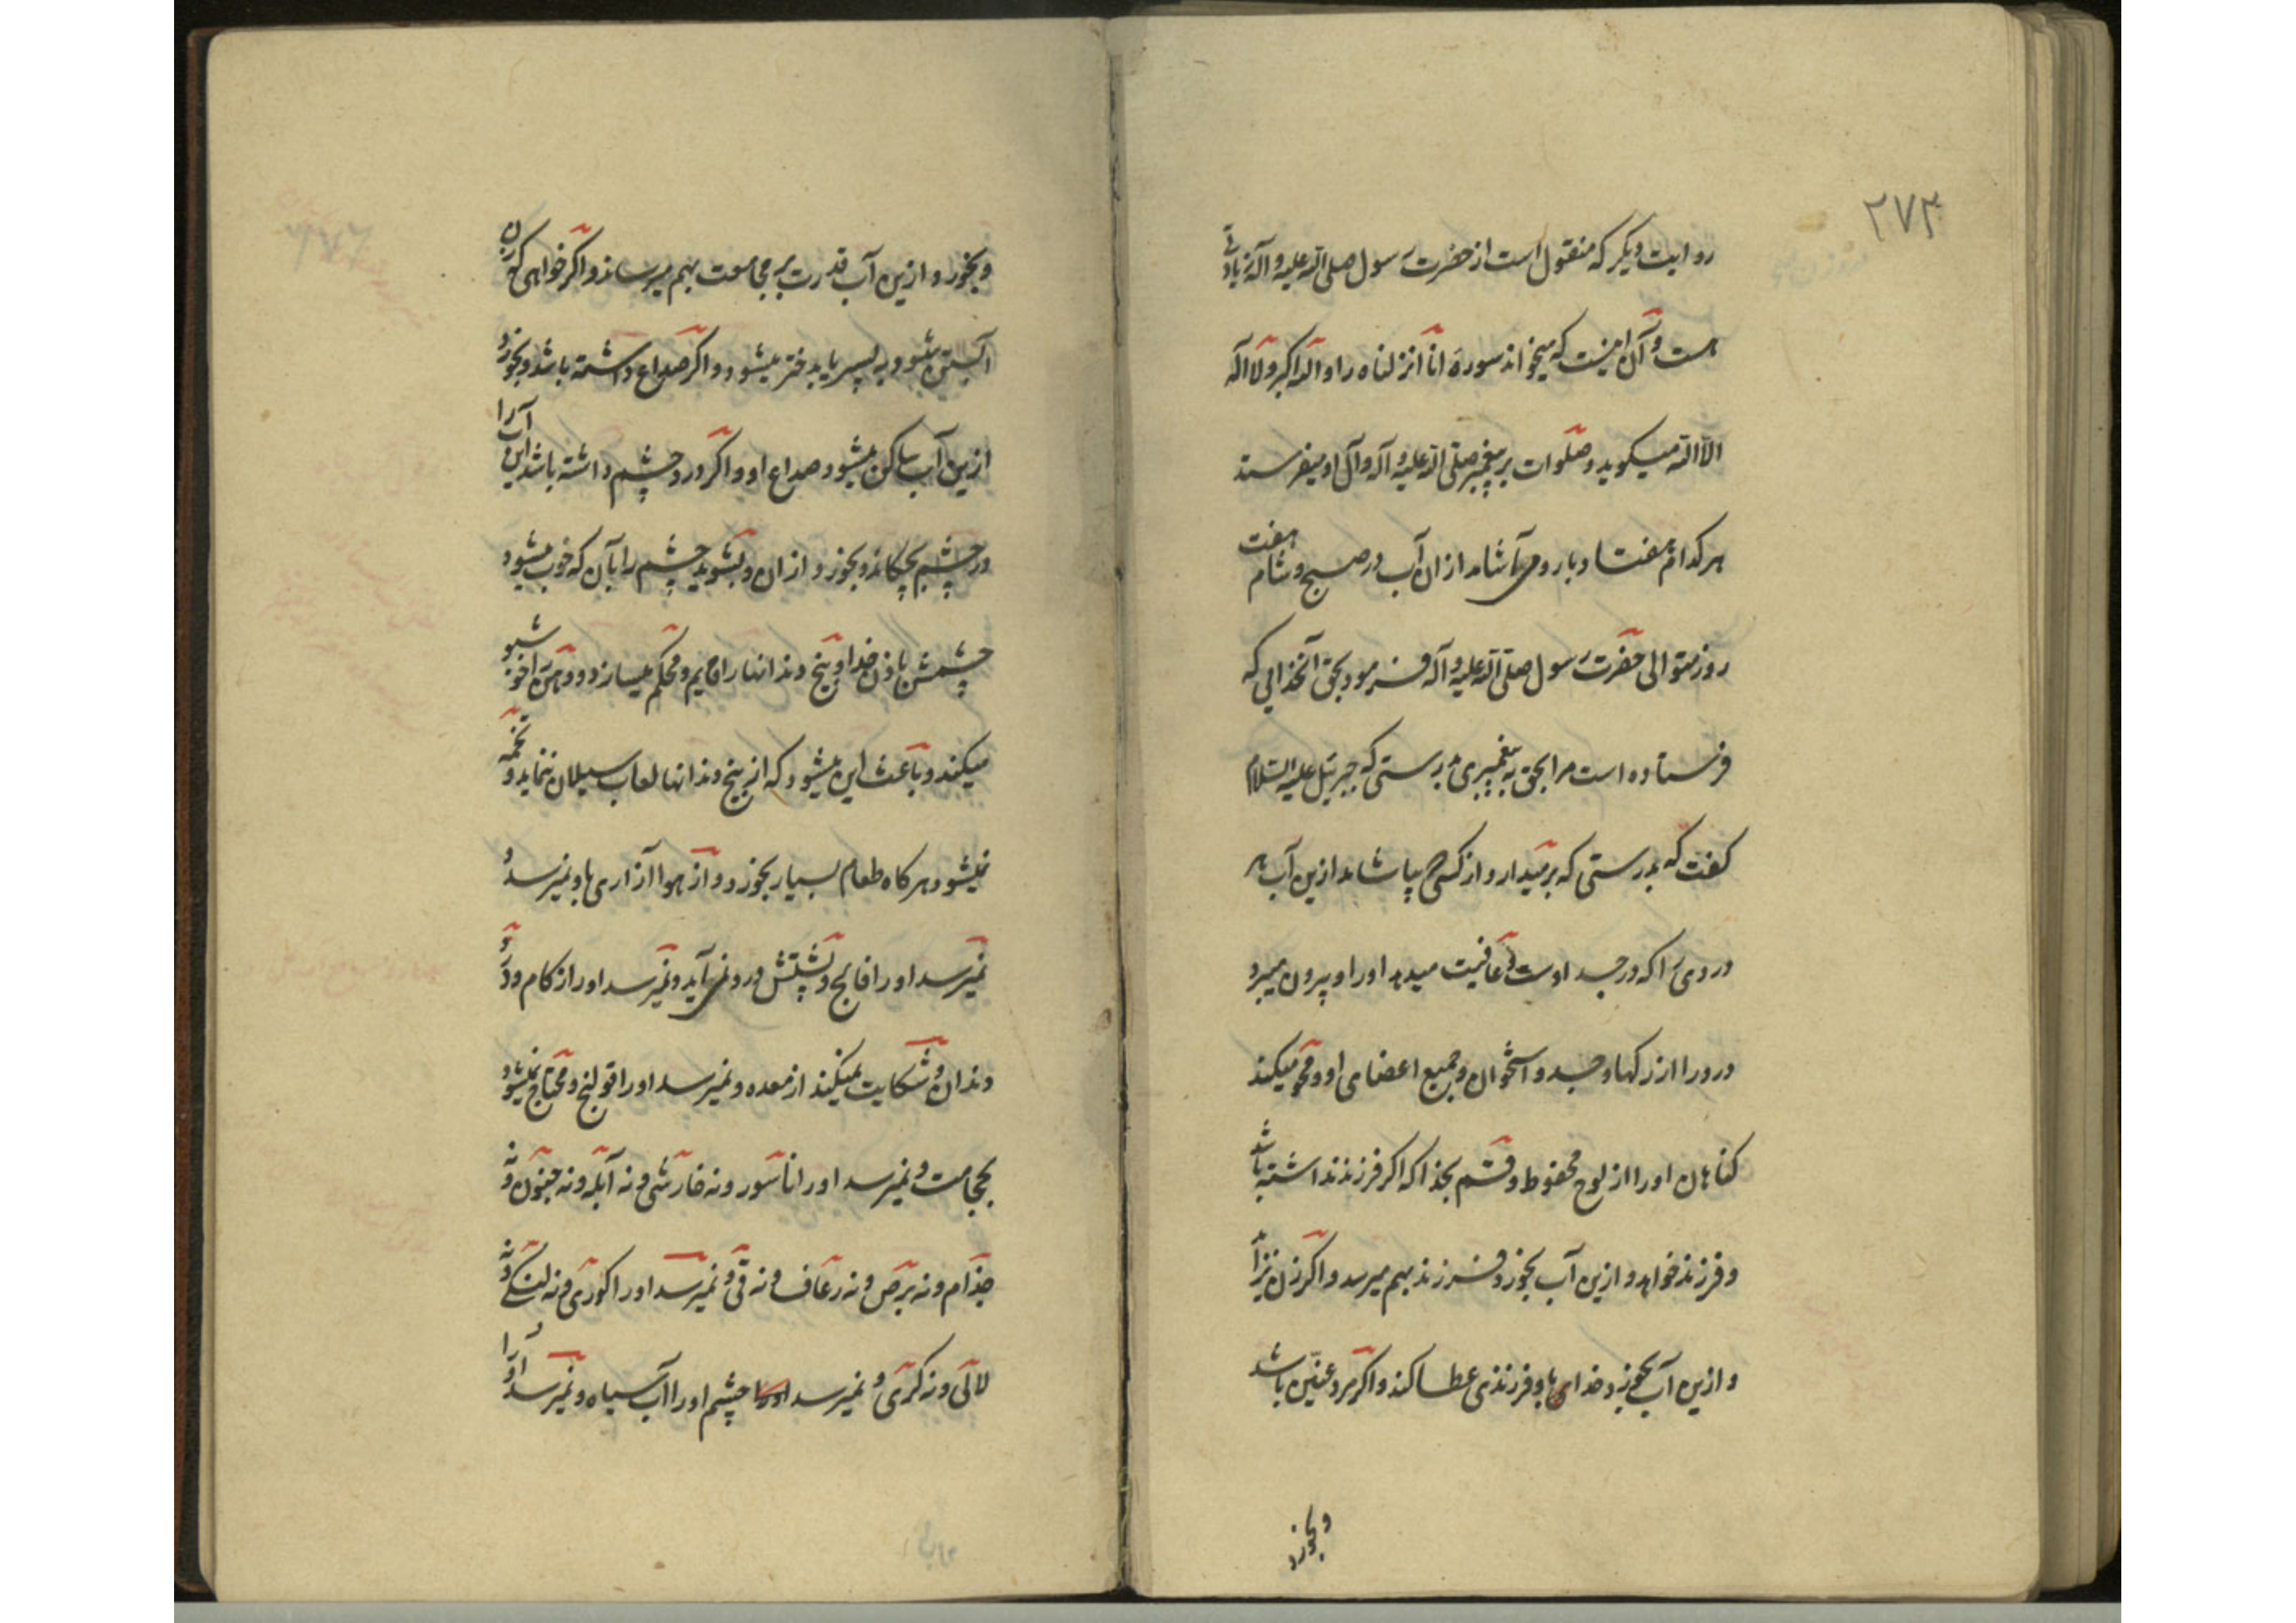 ۲۷۳
روایت دیگر که منقول است از حضرت رسول صلی الله علیه و آله زیادتی
هست و آن اینست که میخواند سوره انا انزلناه را و الله اکبر و لا اله
الا الله میگوید و صلوات بر پیغمبر صلی الله علیه و آله و آل او میفرستد
هر کدام هفتاد بار و می آشامد ازان آب در صبح و شام هفت
روز متوالی حضرت رسول صلی الله علیه و آله فرمود بحق آنخدایی که
فرستاده است مرا بحق به پیغمبری بدرستی که جبرئیل علیه السلام
گفت که بدرستی که برمیدارد از کسی که بیاشامد ازین آب هر
دردی را که در جسد اوست و عافیت میدهد او را و بیرون میبرد
درد را از رگها و جسد و استخوان و جمیع اعضای او و محو میکند
گناهان او را از لوح محفوظ و قسم بخدا که اگر فرزند نداشته باشد
و فرزند خواهد و ازین آب بخورد فرزند بهم میرسد و اگر زن نیز از
و ازین آب بخورد خدای باو فرزندی عطا کند و اگر مرد عنین باشد
و بخورد
و بخورد ازین آب قدرت بر مجامعت بهم میرساند و اگر خواهی که زن
آبستن شود به پسر یا بدختر میشود و اگر صداع داشته باشد و بخورد
ازین آب ساکن میشود صداع او و اگر درد چشم داشته باشد این آب را
در چشم بچکاند و بخورد ازان و بشوید چشم را بآن که خوب میشود
چشمش باذن خدا و بیخ دندانها را قایم و محکم میسازد و دهن را خوشبو
میکند و باعث این میشود که از بیخ دندانها لعاب سیلان ننماید و تخمه
نمیشود هر گاه طعام بسیار بخورد و از هوا آزاری باو نمیرسد و
نمیرسد او را فالج و پشتش درد نمی آید و نمیرسد او را زکام و درد
دندان و شکایت نمیکند از معده و نمیرسد او را قولنج و محتاج نمیشود
بحجامت و نمیرسد او را ناسور و نه خارش و نه آبله و نه جنون و نه
جذام و نه برص و نه رعاف و نه قی و نمیرسد او را کوری و نه لنگی و نه
لالی و نه کری و نمیرسد چشم او را آب سیاه و نمیرسد او را